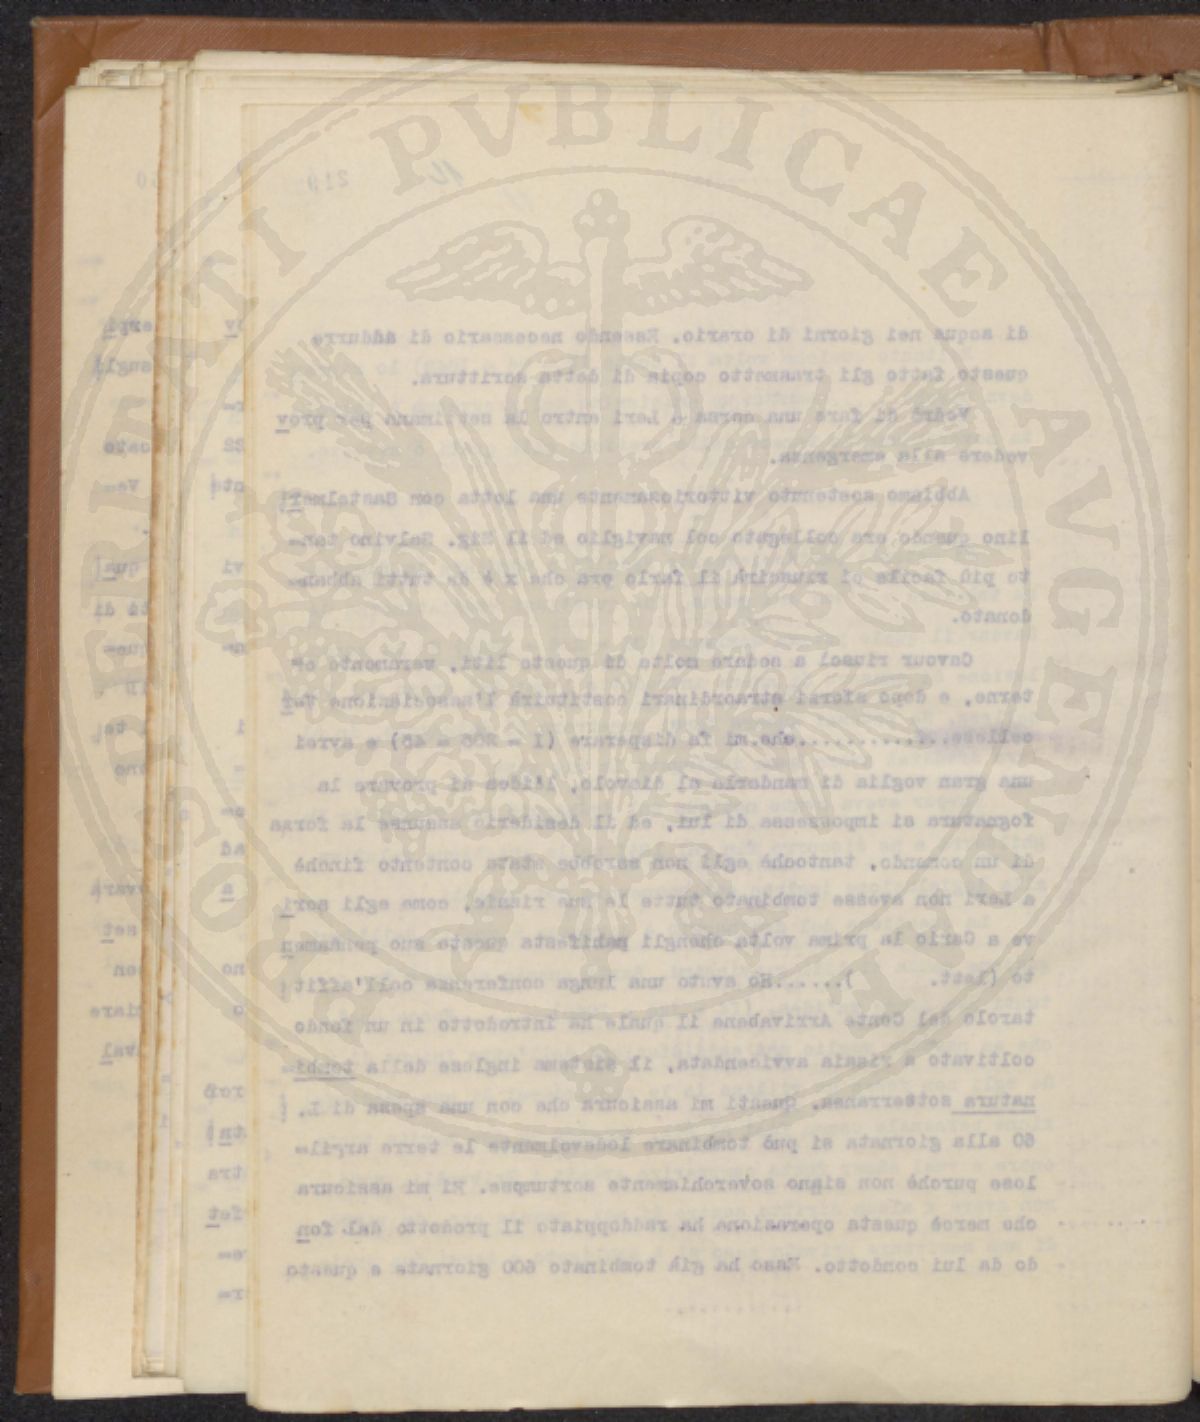 219
di acqua nei giorni di orario. Essendo necessario di addurre
questo fatto gli trasmetto copia di detta scrittura.
Vedrò di fare una corsa a Leri entro la settimana per prov
vedere alla emergenza.
Abbiamo sostenuto vittoriosamente una lotta con Castelmer
lino quando era collegato col naviglio ed il Sig. Salvino tan=
to più facile ci riuscirà il farlo ora che x è da tutti abban=
donato.
Cavour riuscì a sedare molte di queste liti, veramente e=
terne, e dopo sforzi straordinari costituirà l'associazione Ver
cellese..............che mi fa disperare (I - 206 - 45) e avrei
una gran voglia di mandarla al diavolo, idea di provare la
fognatura si impossessa di lui, ed il desiderio assunse la forza
di un comando, tantochè egli non sarebbe stato contento finchè
a Leri non avesse tombinato tutte le sue risaie, come egli scri
ve a Carlo la prima volta chengli manifesta questo suo pensamen
to (lett. ).......Ho avuto una lunga conferenza coll'affit
tarolo del Conte Arrivabene il quale ha introdotto in un fondo
coltivato a risaia avvicendata, il sistema inglese della tombi=
natura sotterranea, quanti mi assicura che con una spesa di L.
60 alla giornata si può tombinare lodevolmente le terre argil=
lose purchè non siano soverchiamente sortumose. Ei mi assicura
che mercè questa operazione ha raddoppiato il prodotto dal fon
do da lui condotto. Esso ha già tombinato 600 giornate e questo
ROSPERITATI PVBLICAE AVGENDAE